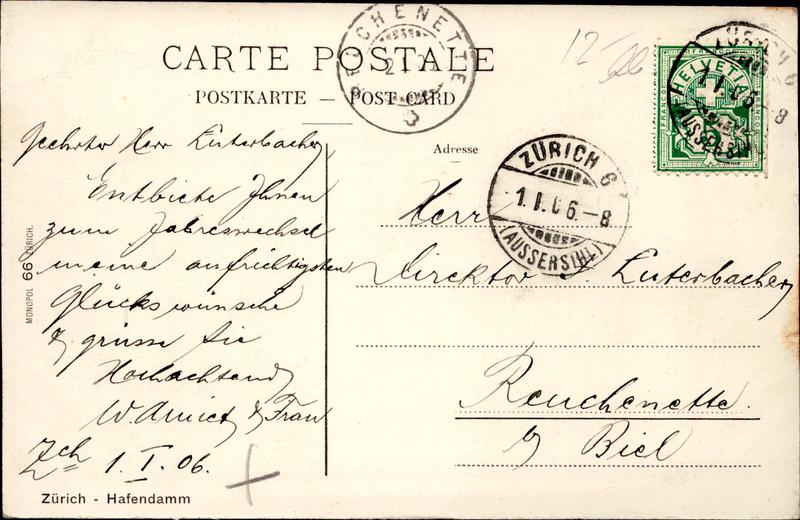 CARTE POSTALE
POSTKARTE — POST-CARD
Adresse
Geehrter Herr Luterbacher,
Entbiete Ihnen
zum Jahreswechsel
meine aufrichtigsten
Glückswünsche
& grüsse Sie
Hochachtend
W. Amiet & Frau
Zch 1. I. 06.
Zürich - Hafendamm
MONOPOL 66 ZÜRICH.
12
REUCHENETTE
HELVETIA
FRANCO
ZÜRICH 6
1.I.06.-8
(AUSSERSIHL)
ZÜRICH 6
1.I.06.-8
(AUSSERSIHL)
Herr
Direktor Luterbacher,
Reuchenette.
b/ Biel